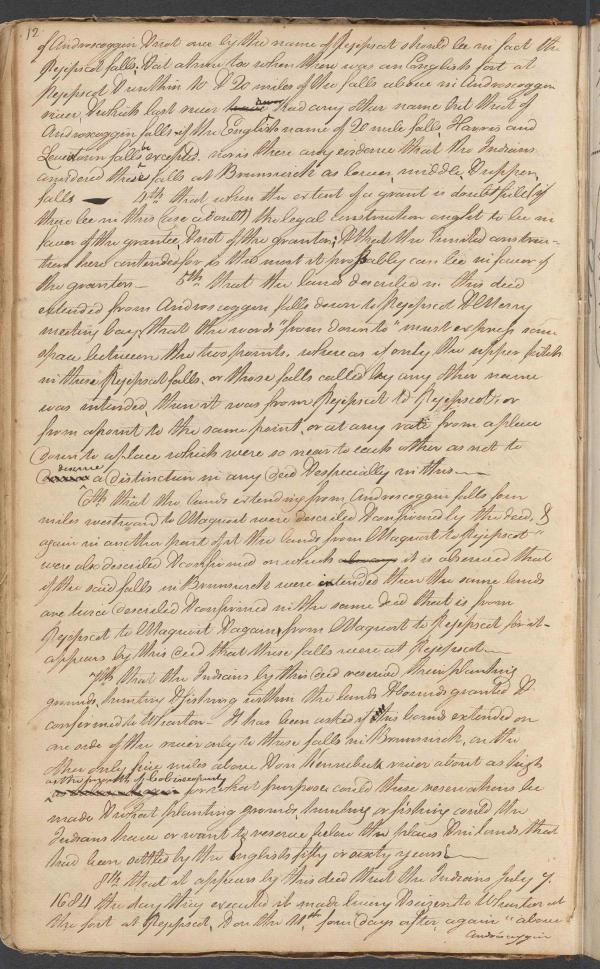 12.
of Androscoggin & not one by the name of Pejepscot should be in fact the
Pejepscot falls. That at a time too when there was an English fort at
Pejepscot & within 10 & 20 miles of the falls above in Androscoggin
river, & which last never had any other name but that of
Androscoggin falls, if the English name of 20 mile falls, Harris and
Lewistown falls be excepted. nor is there any evidence that the Indians
considered these falls at Brunswick as lower, middle, & upper
falls — 4th that when the extent of a grant is doubtful (if
there be in this case a doubt) the legal construction ought to be in
favor of the grantee, & not of the grantor; & that the limited construc-
tion here contended for is the most it possibly can be in favor of
the grantors — 5th that the lands described in this deed
extended from Androscoggin falls down to Pejepscot & Merry
meeting bay, that the words "from down to" must express some
space between the two points. where as if only the upper pitch
in these Pejepscot falls, or those falls called by any other name
was intended, then it was from Pejepscot to Pejepscot, or
from a point to the same point, or at any rate from a place
down to a place which were so near to each other as not to
deserve a distinction in any deed & especially in this —
6th that the lands extending from Androscoggin falls four
miles westward to Maquoit were described & confirmed by the deed, &
again in another part of it the lands from Maquoit to Pejepscot"
were also described & confirmed on which it is observed that
if the said falls in Brunswick were intended then the same lands
are twice described & confirmed in the same deed that is from
Pejepscot to Maquoit & again from Maquoit to Pejepscot for it
appears by this deed that these falls were at Pejepscot —
7th that the Indians by this deed reserved their planting
grounds, hunting & fishing within the lands & bounds granted &
confirmed to Wharton. It has been asked if this bounds extended on
one side of the river only to these falls in Brunswick, on the
other only five miles above & on Kennebeck river about as high
as the mouth of Cobiseconty
for what purpose could these reservations be
made & what planting grounds, hunting or fishing could the
Indians have or want to reserve below the places & in lands that
had been settled by the English fifty or sixty years —
8th that it appears by this deed that the Indians July 7.
1684 the day they executed it made livery & seizen to Wharton at
the fort at Pejepscot, & on the 11th four days after, again "above
Androscoggin